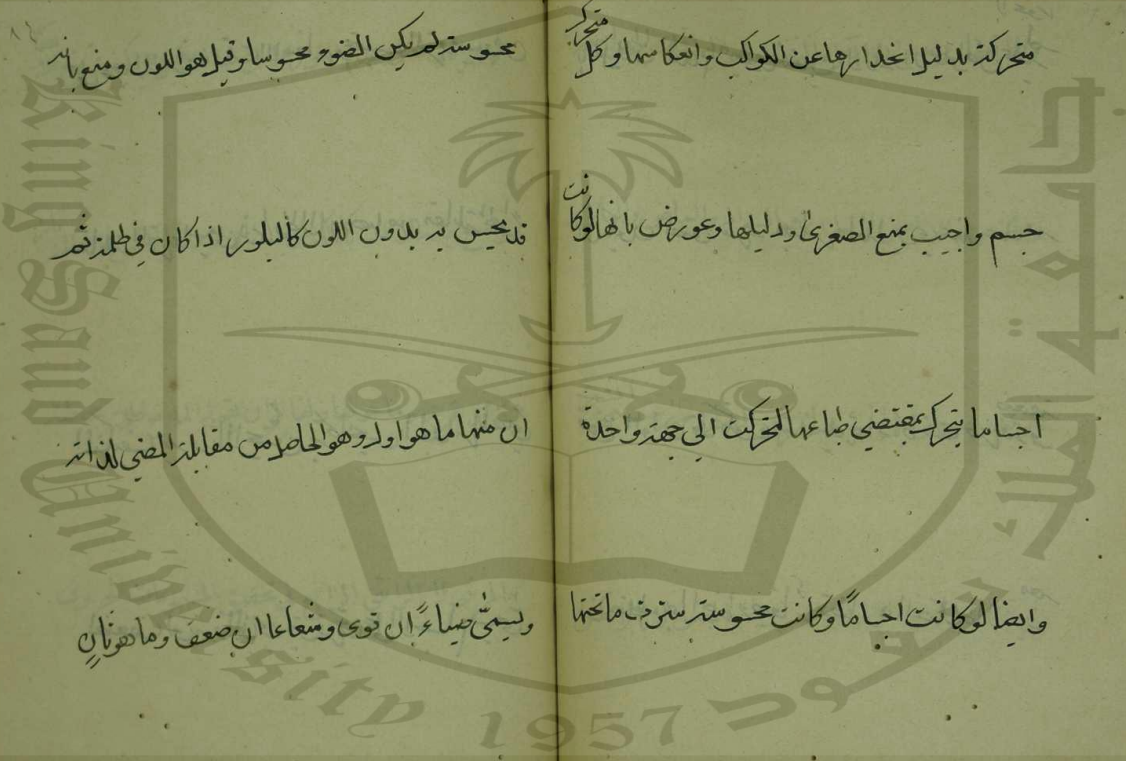 متحركة بدليل انحدارها عن الكواكب وانعكاسها وكل متحرك
جسم واجيب بمنع الصغرى ودليلها وعورض بانها لوكانت
اجساما يتحرك بمقتضي طباعها لتحركت الي جهة واحدة
وايضا لو كانت اجساما وكانت محسوسة سترت ماتحتها
محسوسة لم يكن الضوء محسوسا وقيل هو اللون ومنع بانه
قد يحس به بدون اللون كالبلور اذا كان في ظلمة ثم
ان منها ما هو اول وهو الحاصل من مقابلة المضي لذاته
ويسمى ضياءً ان قوى وشعاعا ان ضعف وما هو ثانٍ
جامعة الملك سعود
King Saud University
1957